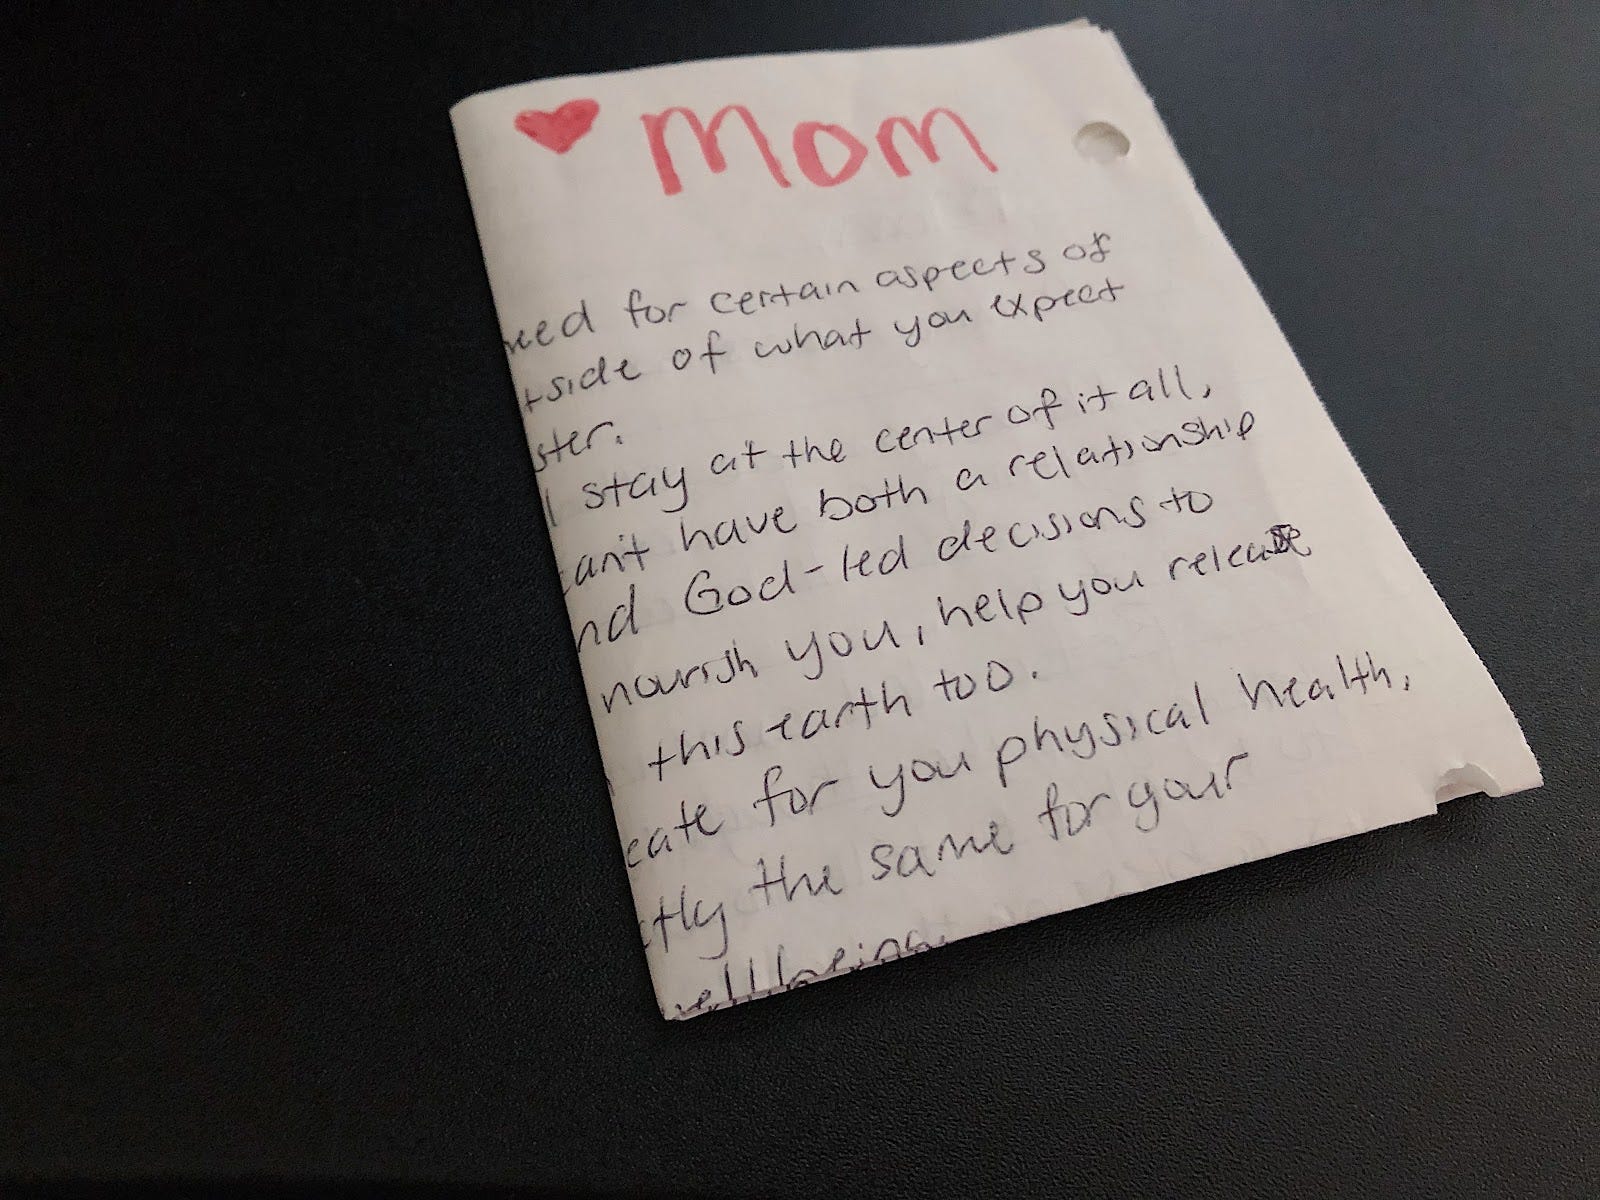 ♥ Mom
need for certain aspects of
tside of what you expect
ster.
l stay at the center of it all,
can't have both a relationship
nd God-led decisions to
nourish you, help you release
this earth too.
eate for you physical health,
ctly the same for your
well being.